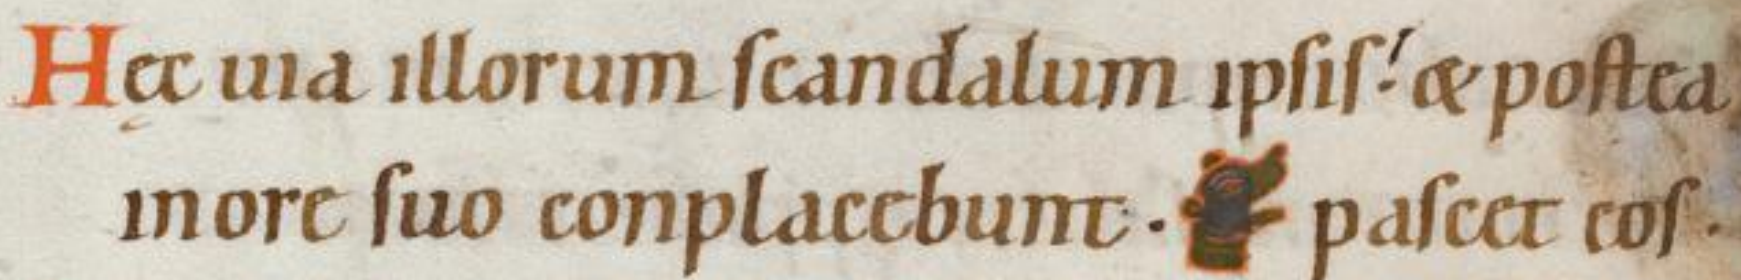 Hęc uia illorum scandalum ipsis! & postea
in ore suo conplacebunt · pascet eos ·